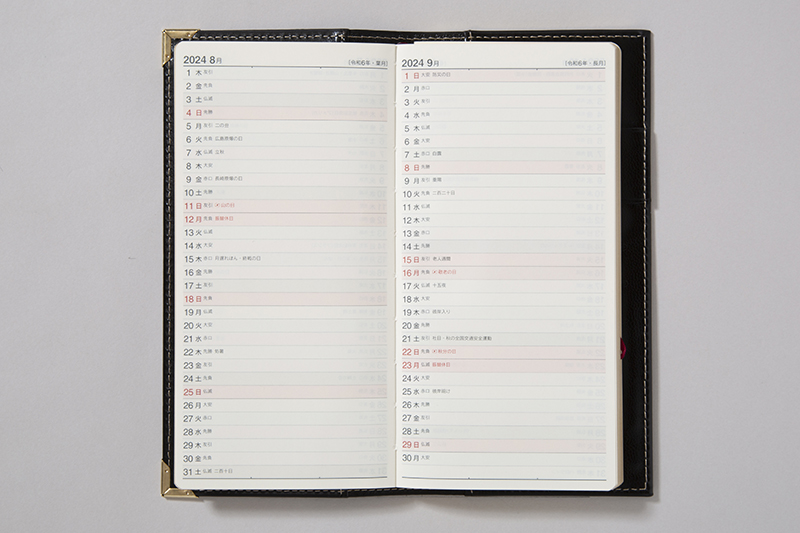 2024 8月 [令和6年・葉月]
1 木 友引
2 金 先負
3 土 仏滅
4 日 先勝
5 月 友引 二の丑
6 火 先負 広島原爆の日
7 水 仏滅 立秋
8 木 大安
9 金 赤口 長崎原爆の日
10 土 先勝
11 日 友引 山の日
12 月 先負 振替休日
13 火 仏滅
14 水 大安
15 木 赤口 月遅れぼん・終戦の日
16 金 先勝
17 土 友引
18 日 先負
19 月 仏滅
20 火 大安
21 水 赤口
22 木 先勝 処暑
23 金 友引
24 土 先負
25 日 仏滅
26 月 大安
27 火 赤口
28 水 先勝
29 木 友引
30 金 先負
31 土 仏滅 二百十日
2024 9月 [令和6年・長月]
1 日 大安 防災の日
2 月 赤口
3 火 友引
4 水 先負
5 木 仏滅
6 金 大安
7 土 赤口 白露
8 日 先勝
9 月 友引 重陽
10 火 先負 二百二十日
11 水 仏滅
12 木 大安
13 金 赤口
14 土 先勝
15 日 友引 老人週間
16 月 先負 敬老の日
17 火 仏滅 十五夜
18 水 大安
19 木 赤口 彼岸入り
20 金 先勝
21 土 友引 社日・秋の全国交通安全運動
22 日 先負 秋分の日
23 月 仏滅 振替休日
24 火 大安
25 水 赤口 彼岸明け
26 木 先勝
27 金 友引
28 土 先負
29 日 仏滅
30 月 大安